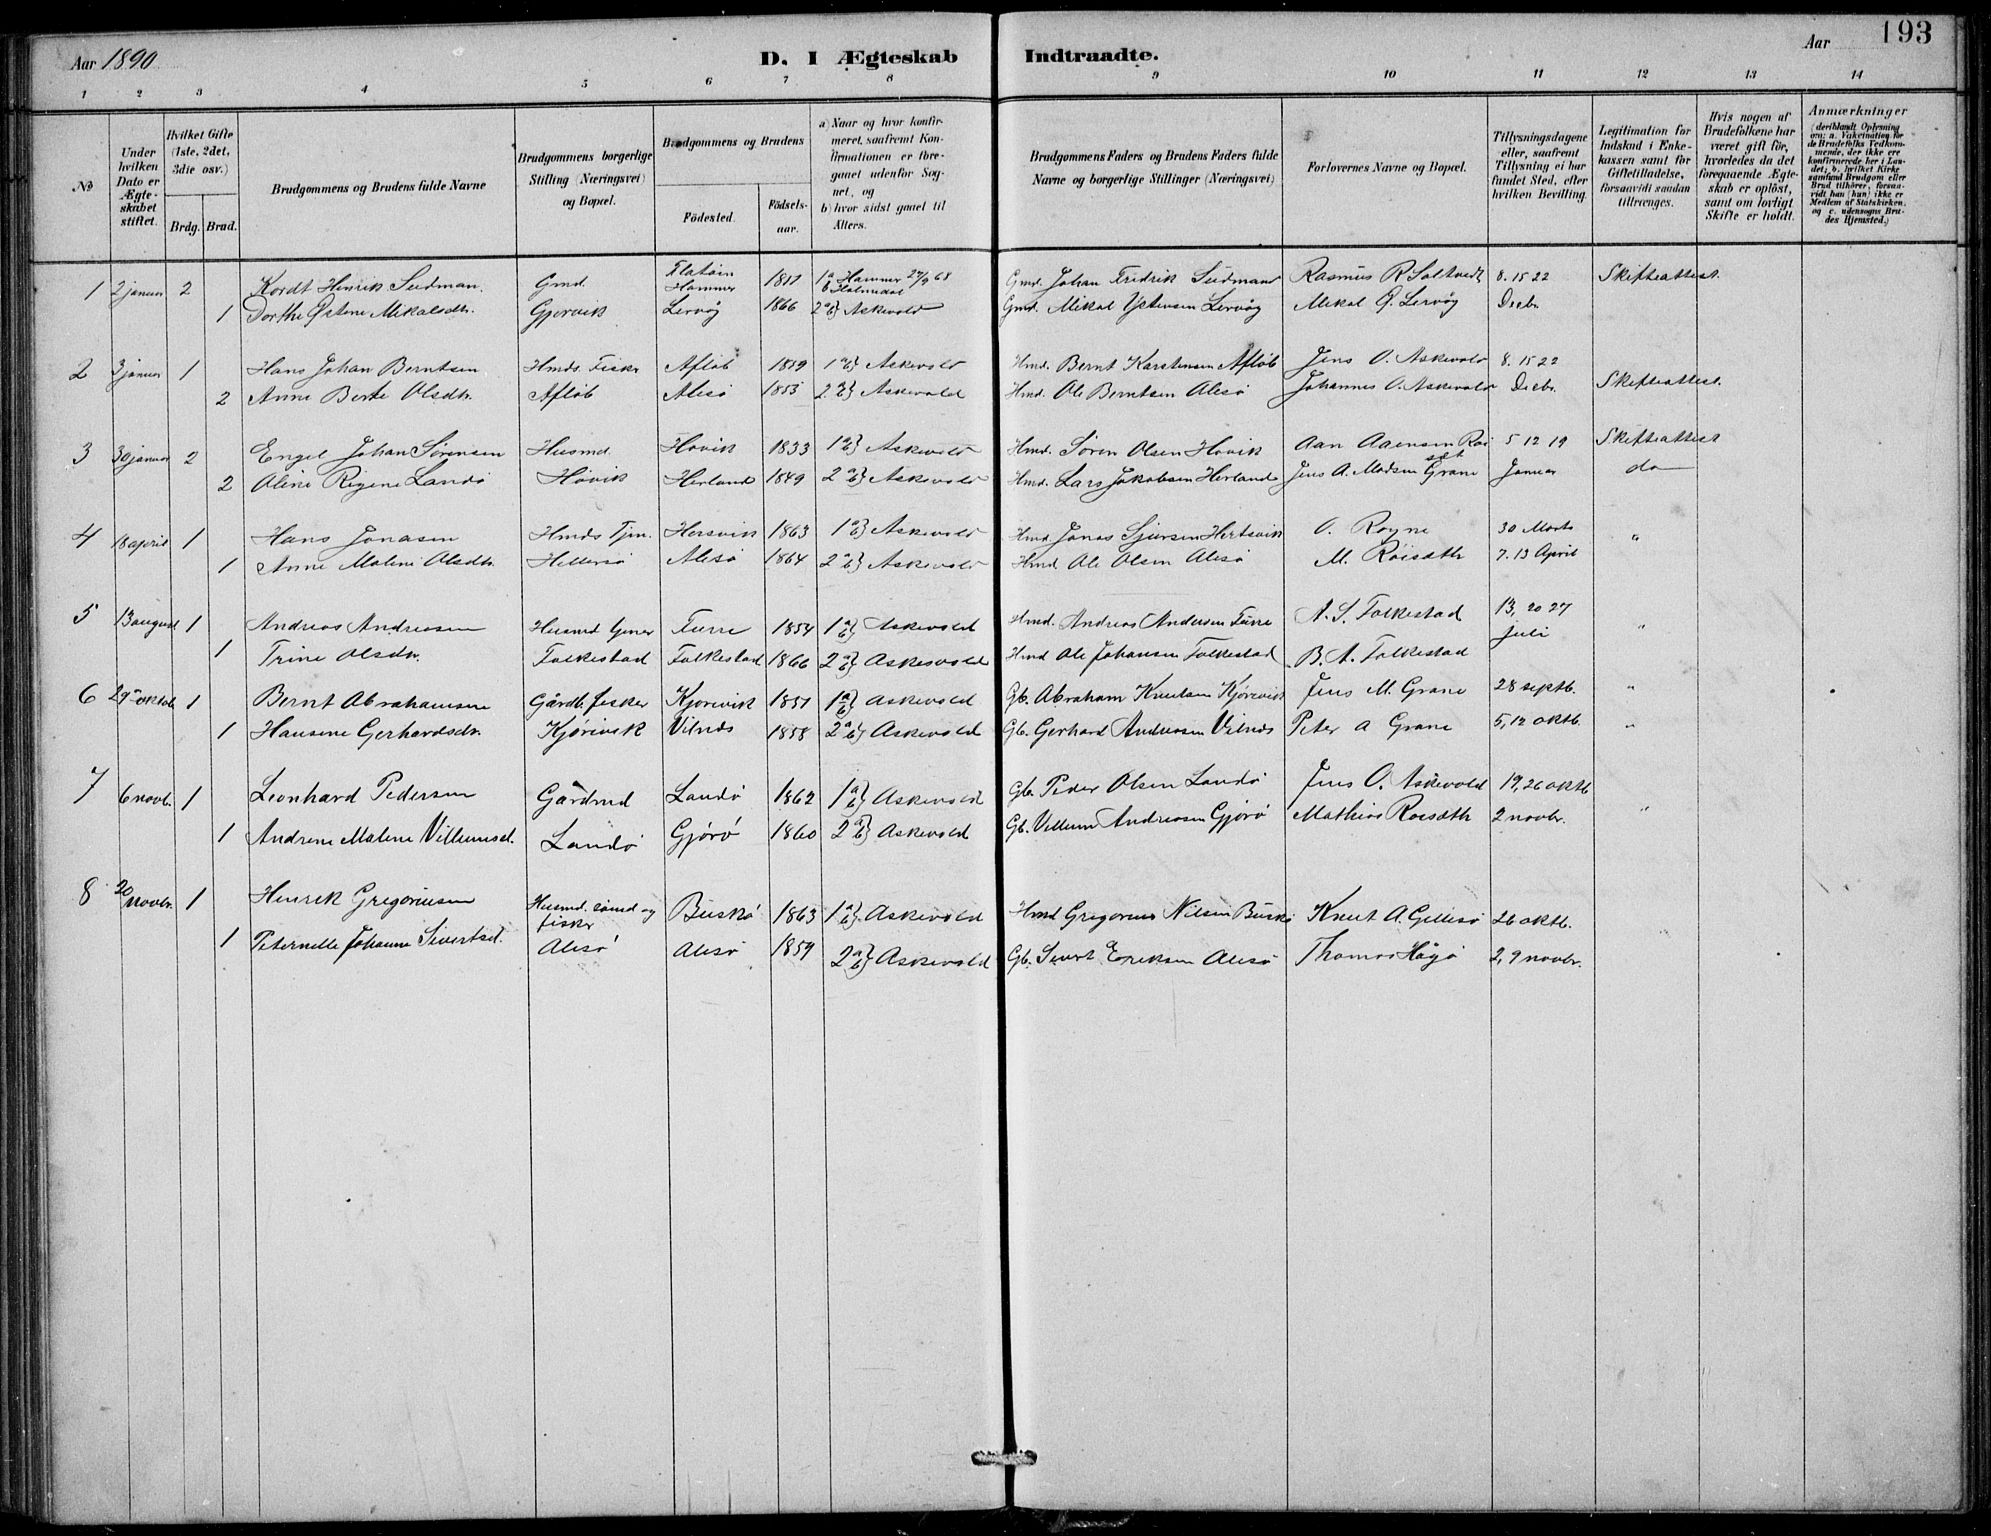 Aar 1890
D. I Ægteskab Indtraadte.
Aar
193
1 2 3 4 5 6 7 8 9 10 11 12 13 14
No
Under hvilken Dato er Ægteskabet stiftet.
Hvilket Gifte (1ste, 2det, 3die osv.)
Brdg. Brud.
Brudgommens og Brudens fulde Navne
Brudgommens borgerlige Stilling (Næringsvei) og Bopæl.
Brudgommens og Brudens
Födested.
Födselsaar.
a) Naar og hvor konfirmeret, saafremt Konfirmationen er foregaaet udenfor Sognet, og
b) hvor sidst gaaet til Alters.
Brudgommens Faders og Brudens Faders fulde Navne og borgerlige Stillinger (Næringsvei)
Forlovernes Navne og Bopæl.
Tillysningsdagene eller, saafremt Tillysning ei har fundet Sted, efter hvilken Bevilling.
Legitimation for Indskud i Enkekassen samt for Giftetilladelse, forsaavidt saadan tiltrænges.
Hvis nogen af Brudefolkene har været gift för, hvorledes da det foregaaende Ægteskab er oplöst, samt om lovligt Skifte er holdt.
Anmærkninger
(deriblandt Oplysning om: a. Vakcination for de Brudefolks Vedkommende, der ikke ere konfirmerede her i Landet; b. hvilket Kirkesamfund Brudgom eller Brud tilhörer, forsaavidt han (hun) ikke er Medlem af Statskirken, og c. udensogns Brudes Hjemsted.)
1 2 januar 2 Kordt Henrik Sudman. Gmd. Flatöen Hammer 18 1 a Hammer 27/9 68 b Holmedal Gmd. Johan Fredrik Sudmann Rasmus R Saltvedt 8. 15 22 Skifteattest.
1 Dorthe Østene Mikalsdtr. Gjervik Lervög 1866 2 a b} Askevold Gmd. Mikal Ystensen Lervög Mikal Ø. Lervög Decbr.
2 3 januar 1 Hans Johan Berntsen Hmds. Fisker Afløb 1 a b} Askevold Hmd. Bernt Karstensen Afløb Jens O. Askevold 8. 15 22
2 Anne Berte Olsdtr. Afløb Alesö 1853 2 a b} Askevold Hmd. Ole Berntsen Alesö Johannes O. Askevold Decbr. Skifteattest.
3 30 januar 2 Engel Johan Sørensen Husmd. Hovik 1833 1 a b} Askevold Hmd. Sören Olsen Hovik Aan Aaensen Roi 5 12 19 Skifteattest
2 Oline Regine Landö Hövik Herland 1849 2 a b} Askevold Hmd. Lars Jakobsen Herland Jens A. Madsen Grane Januar do
4 18 april 1 Hans Jonasen Hmds Tjen. Hersvik 1863 1 a b} Askevold Hmd. Jonas Sjursen Hertsvik O. Røyne 30 Marts "
1 Anne Maline Olsdtr. Hellersö Alesö 1864 2 a b} Askevold Hmd Ole Olsen Alesö M. Röisæth 7. 13 April
5 13 august 1 Andreas Andreasen Husmd Furre 1854 1 a b} Askevold Hmd. Andreas Andersen Furre A. S. Folkestad 13, 20 27 "
1 Trine Olsdtr. Folkestad Folkestad 1866 2 a b} Askevold Hmd Ole Johansen Folkestad B. A. Folkestad Juli
6 29 oktob. 1 Bernt Abrahamsen Gårdb. fisker Kjørevik 1857 1 a b} Askevold Gb. Abraham Knutsen Kjørevik Jens M. Grane 28 septb. "
1 Hansine Gerhardsdr. Kjørevik Vilnæs 1858 2 a b} Askevold Gb. Gerhard Andreasen Vilnæs Peter A Grane 5, 12 oktb. "
7 6 novbr. 1 Leonhard Pedersen Gårdmd Landö 1862 1 a b} Askevold Gb. Peder Olsen Landö Jens O. Askevold 19, 26 oktb
1 Andrine Maline Villumsd. Landö Gjörö 1860 2 a b} Askevold Gb. Villum Andreasen Gjörö Mathias Roisæth 2 novbr. "
8 20 novbr. 1 Henrik Gregoriusen Husmd. sømd og fisker Buskö 1863 1 a b} Askevold Hmd Gregorius Nilsen Buskö Knut A. Gellesö 26 oktb.
1 Peternelle Johanne Sivertsd. Alesö Alesö 1859 2 a b} Askevold Gb. Sivert Eriksen Alesö Thomas Hågö 2, 9 novbr.